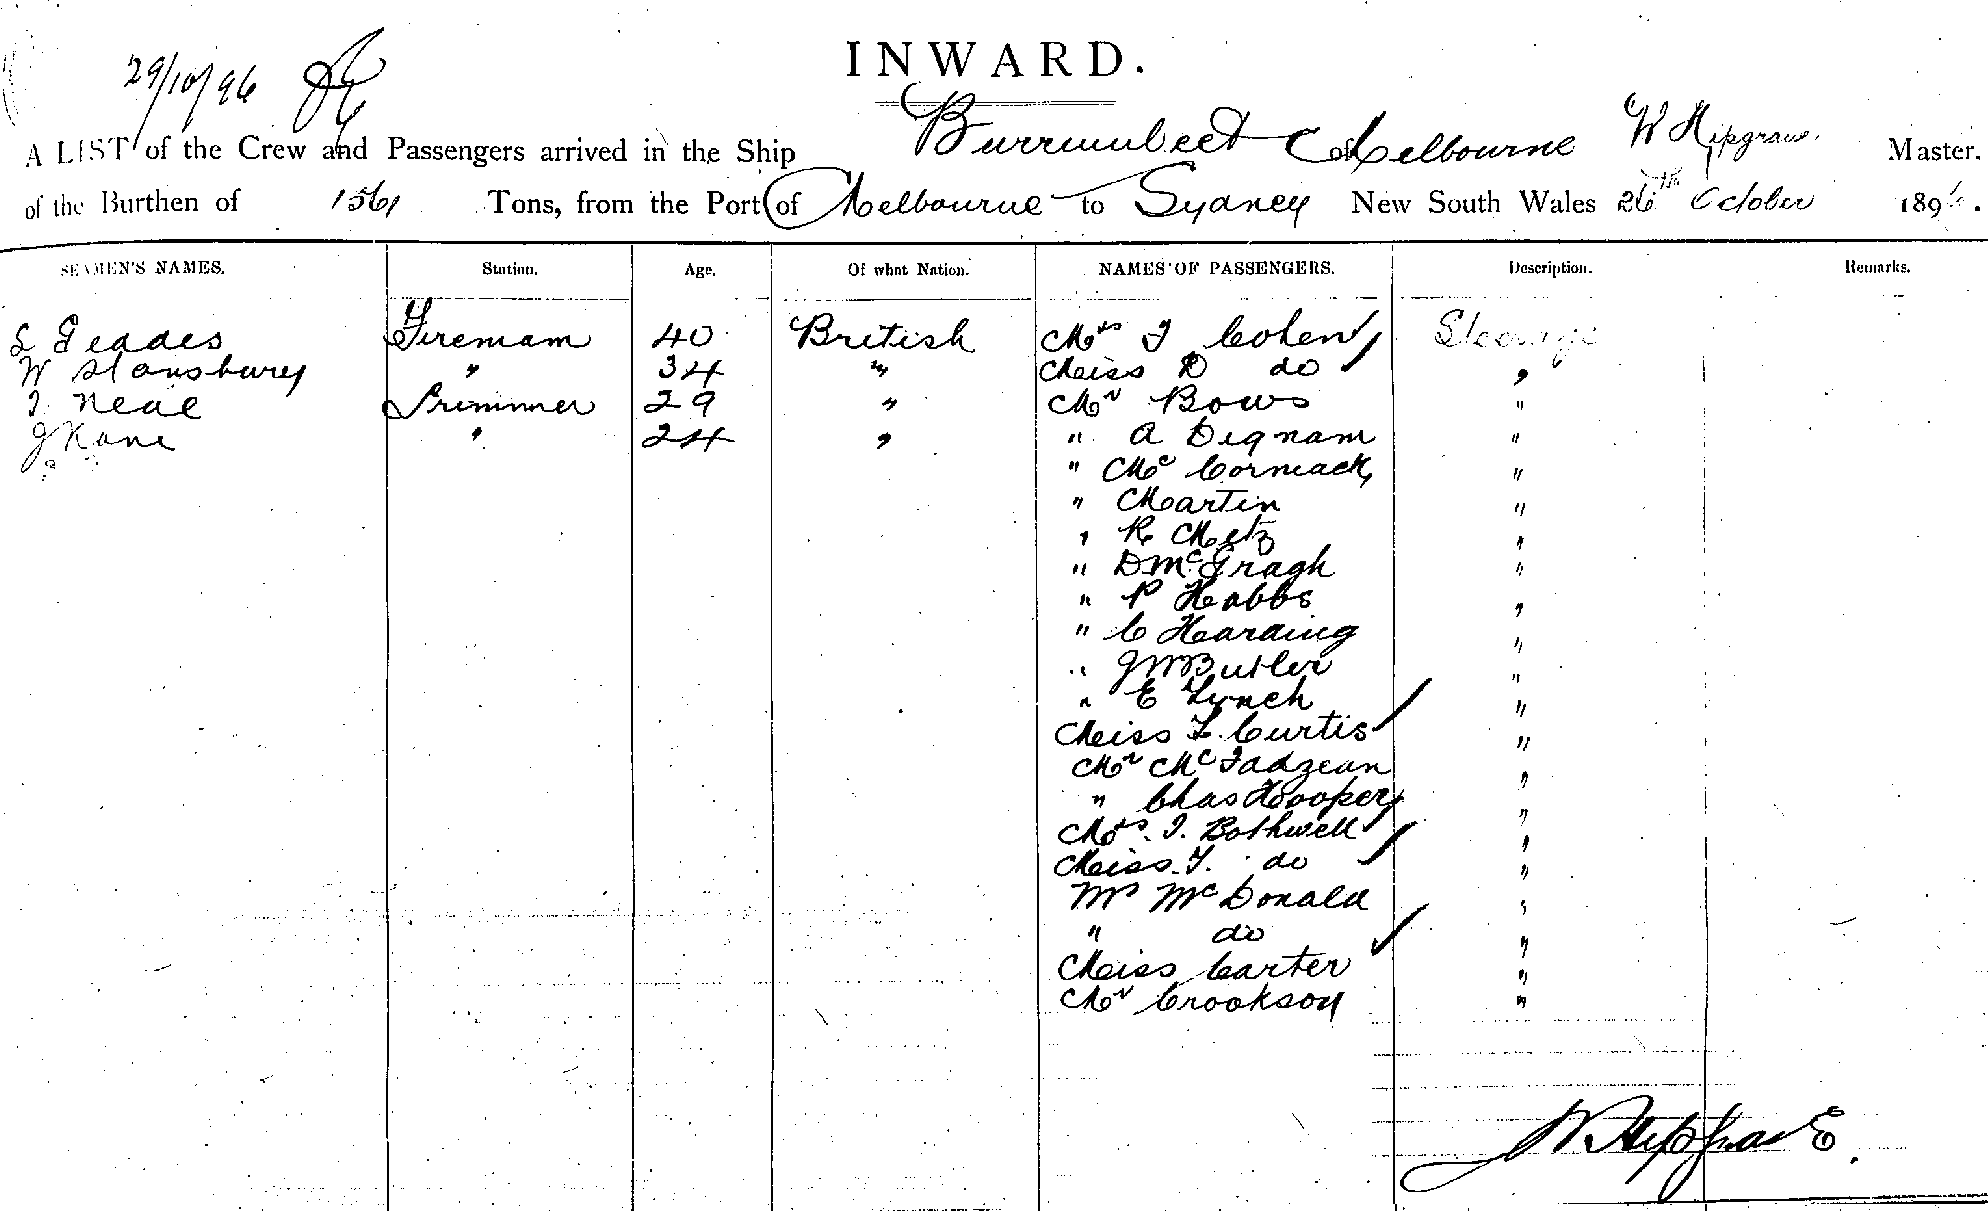 INWARD.
29/10/96
A LIST of the Crew and Passengers arrived in the Ship Burrumbeet of Melbourne W Hipgrave Master.
of the Burthen of 1561 Tons, from the Port of Melbourne to Sydney New South Wales 26th October 1896.
SEAMEN'S NAMES. Station. Age. Of what Nation. NAMES OF PASSENGERS. Description. Remarks.
S Geddes Fireman 40 British Mrs T Cohen Steerage
W Stansbury " 34 " Miss R do "
T Neal Trimmer 29 " Mr Bows "
J Kane " 24 " " A Dignam "
" McCormack "
" Martin "
" R Metz "
" D McGragh "
" P Habbs "
" C Harding "
" J M Butler "
" E Lynch "
Miss L. Curtis "
Mr McFadzean "
" Chas Hooper "
Mrs. T. Bothwell "
Miss. T. do "
Mr McDonald "
" do "
Miss Carter "
Mr Crookson "
W Hipgrave.